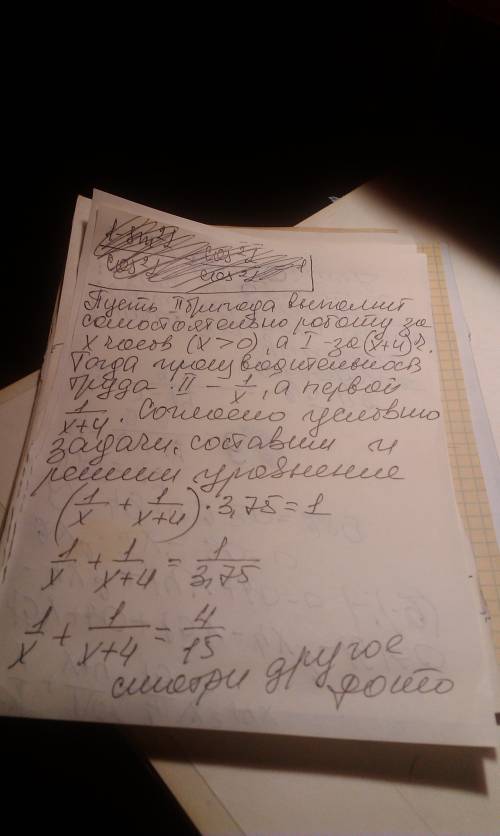 1-sin²1
cos²1
cos²1
cos²1
Пусть II бригада выполнит
самостоятельно работу за
x часов (x>0), а I - за (x+4) ч.
Тогда производительность
труда II - 1/x, а первой
1/(x+4). Согласно условию
задачи, составим и
решим уравнение
(1/x + 1/(x+4)) · 3,75 = 1
1/x + 1/(x+4) = 1/3,75
1/x + 1/(x+4) = 4/15
смотри другое
фото